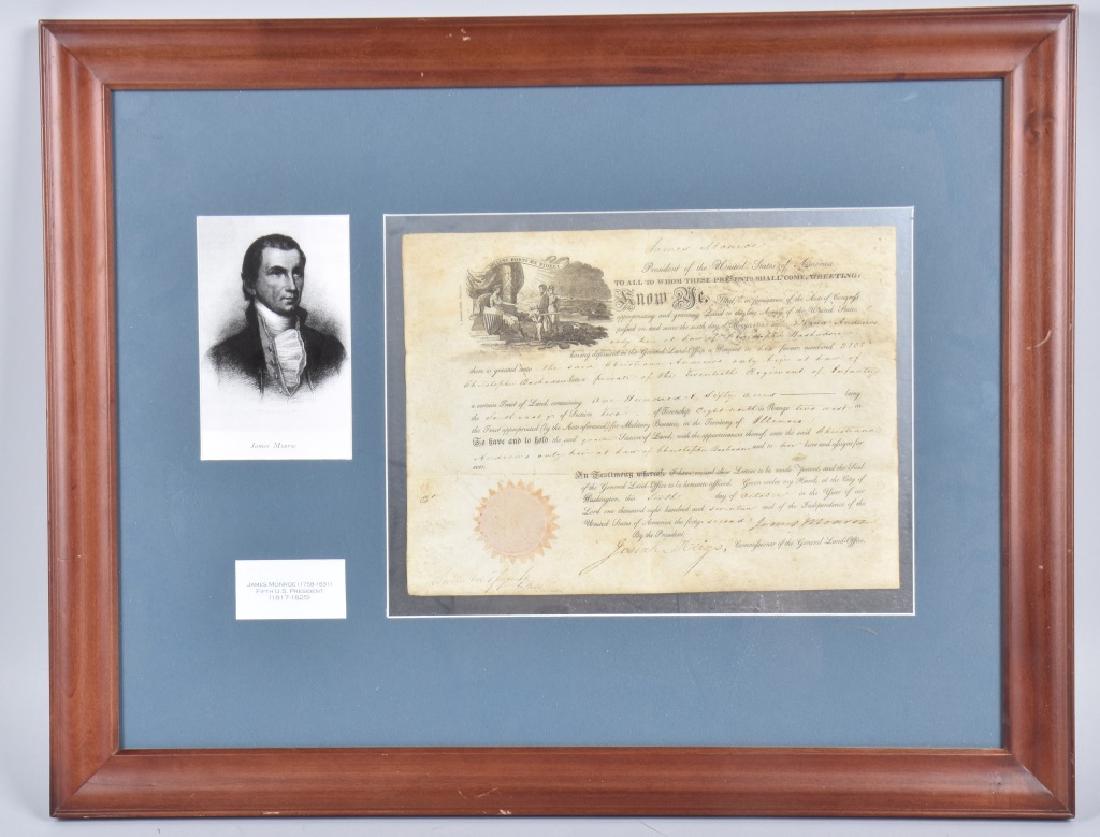 James Monroe
JAMES MONROE (1758-1831)
FIFTH U.S. PRESIDENT
(1817-1825)
James Monroe
President of the United States of America
TO ALL TO WHOM THESE PRESENTS SHALL COME, GREETING:
Know Ye, That, in pursuance of the Acts of Congress
appropriating and granting Land to the late Army of the United States
passed on and since the sixth day of
only heir at law of Christopher
having deposited in the General Land-Office a Warrant in favor numbered
there is granted unto the said Christiana Andrews only heir at law of
Christopher private of the Twentieth Regiment of Infantry
a certain Tract of Land, containing One Hundred & Sixty acres being
the South east qr of Section of Township Eight north in Range two west in
the Tract appropriated (by the Acts aforesaid) for Military Bounties, in the Territory of Illinois
To have and to hold the said quarter Section of Land, with the appurtenances thereof unto the said Christiana
Andrews only heir at law of Christopher and to her heirs and assigns for
ever.
In Testimony whereof, I have caused these Letters to be made Patent, and the Seal
of the General Land-Office to be hereunto affixed. Given under my Hand, at the City of
Washington, this sixth day of October in the Year of our
Lord one thousand eight hundred and seventeen and of the Independence of the
United States of America the forty second James Monroe
By the President
Josiah Meigs, Commissioner of the General Land-Office.